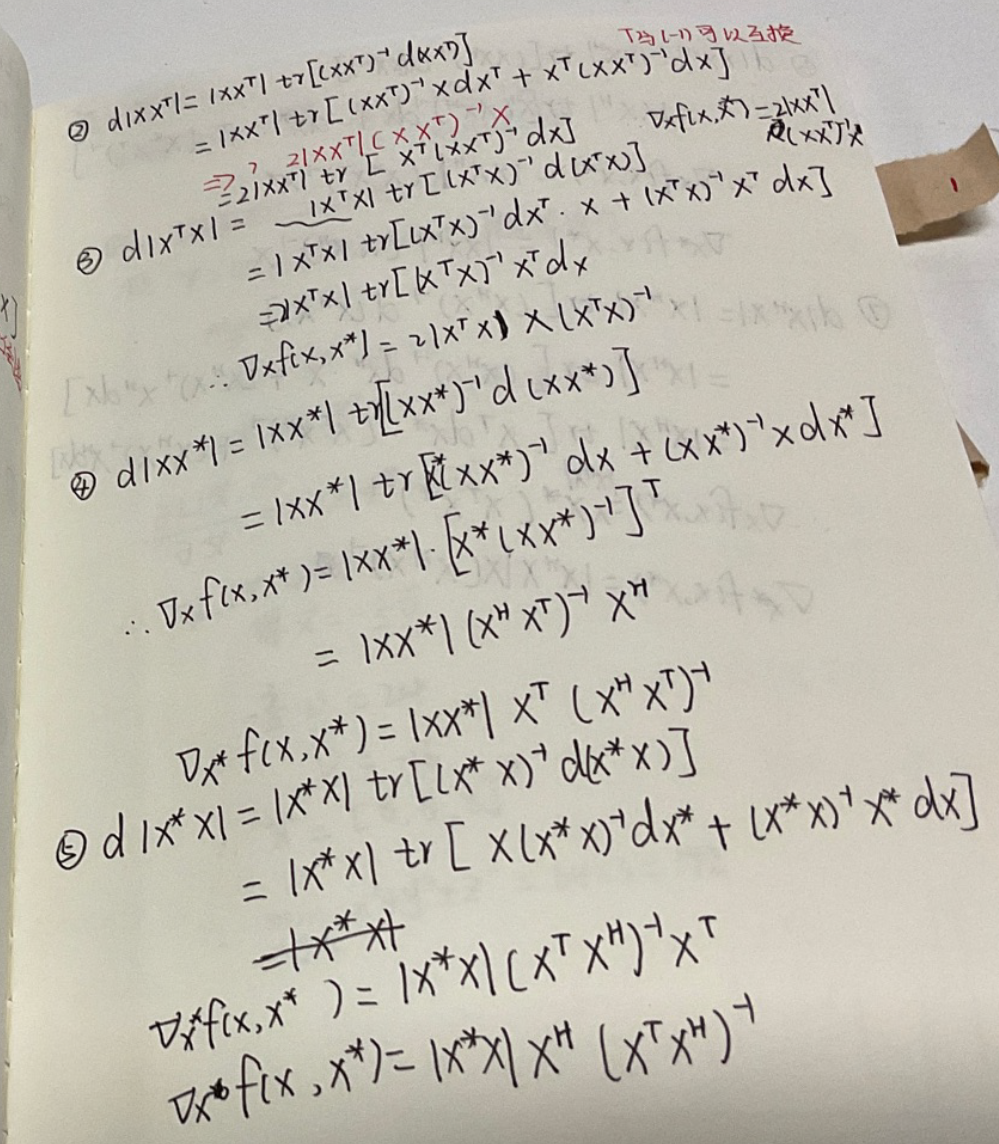 T与(-1)可以互换
② d|XXᵀ| = |XXᵀ| tr[(XXᵀ)⁻¹ d(XXᵀ)]
= |XXᵀ| tr[(XXᵀ)⁻¹ X dXᵀ + Xᵀ(XXᵀ)⁻¹ dX]
=> ? 2|XXᵀ|(XXᵀ)⁻¹X
= 2|XXᵀ| tr[Xᵀ(XXᵀ)⁻¹ dX]
∇ₓf(X,X*) = 2|XXᵀ|
(XXᵀ)⁻¹X
③ d|XᵀX| = |XᵀX| tr[(XᵀX)⁻¹ d(XᵀX)]
= |XᵀX| tr[(XᵀX)⁻¹ dXᵀ·X + (XᵀX)⁻¹Xᵀ dX]
= 2|XᵀX| tr[(XᵀX)⁻¹Xᵀ dX
∴ ∇ₓf(X,X*) = 2|XᵀX| X(XᵀX)⁻¹
④ d|XX*| = |XX*| tr[(XX*)⁻¹ d(XX*)]
= |XX*| tr[X*(XX*)⁻¹ dX + (XX*)⁻¹X dX*]
∴ ∇ₓf(X,X*) = |XX*|·[X*(XX*)⁻¹]ᵀ
= |XX*| (Xᴴ Xᵀ)⁻¹ Xᴴ
∇ₓ*f(X,X*) = |XX*| Xᵀ (Xᴴ Xᵀ)⁻¹
⑤ d|X*X| = |X*X| tr[(X*X)⁻¹ d(X*X)]
= |X*X| tr[X(X*X)⁻¹dX* + (X*X)⁻¹X* dX]
= |X*X|
∇ₓ*f(X,X*) = |X*X| (XᵀXᴴ)⁻¹Xᵀ
∇ₓf(X,X*) = |X*X| Xᴴ (XᵀXᴴ)⁻¹